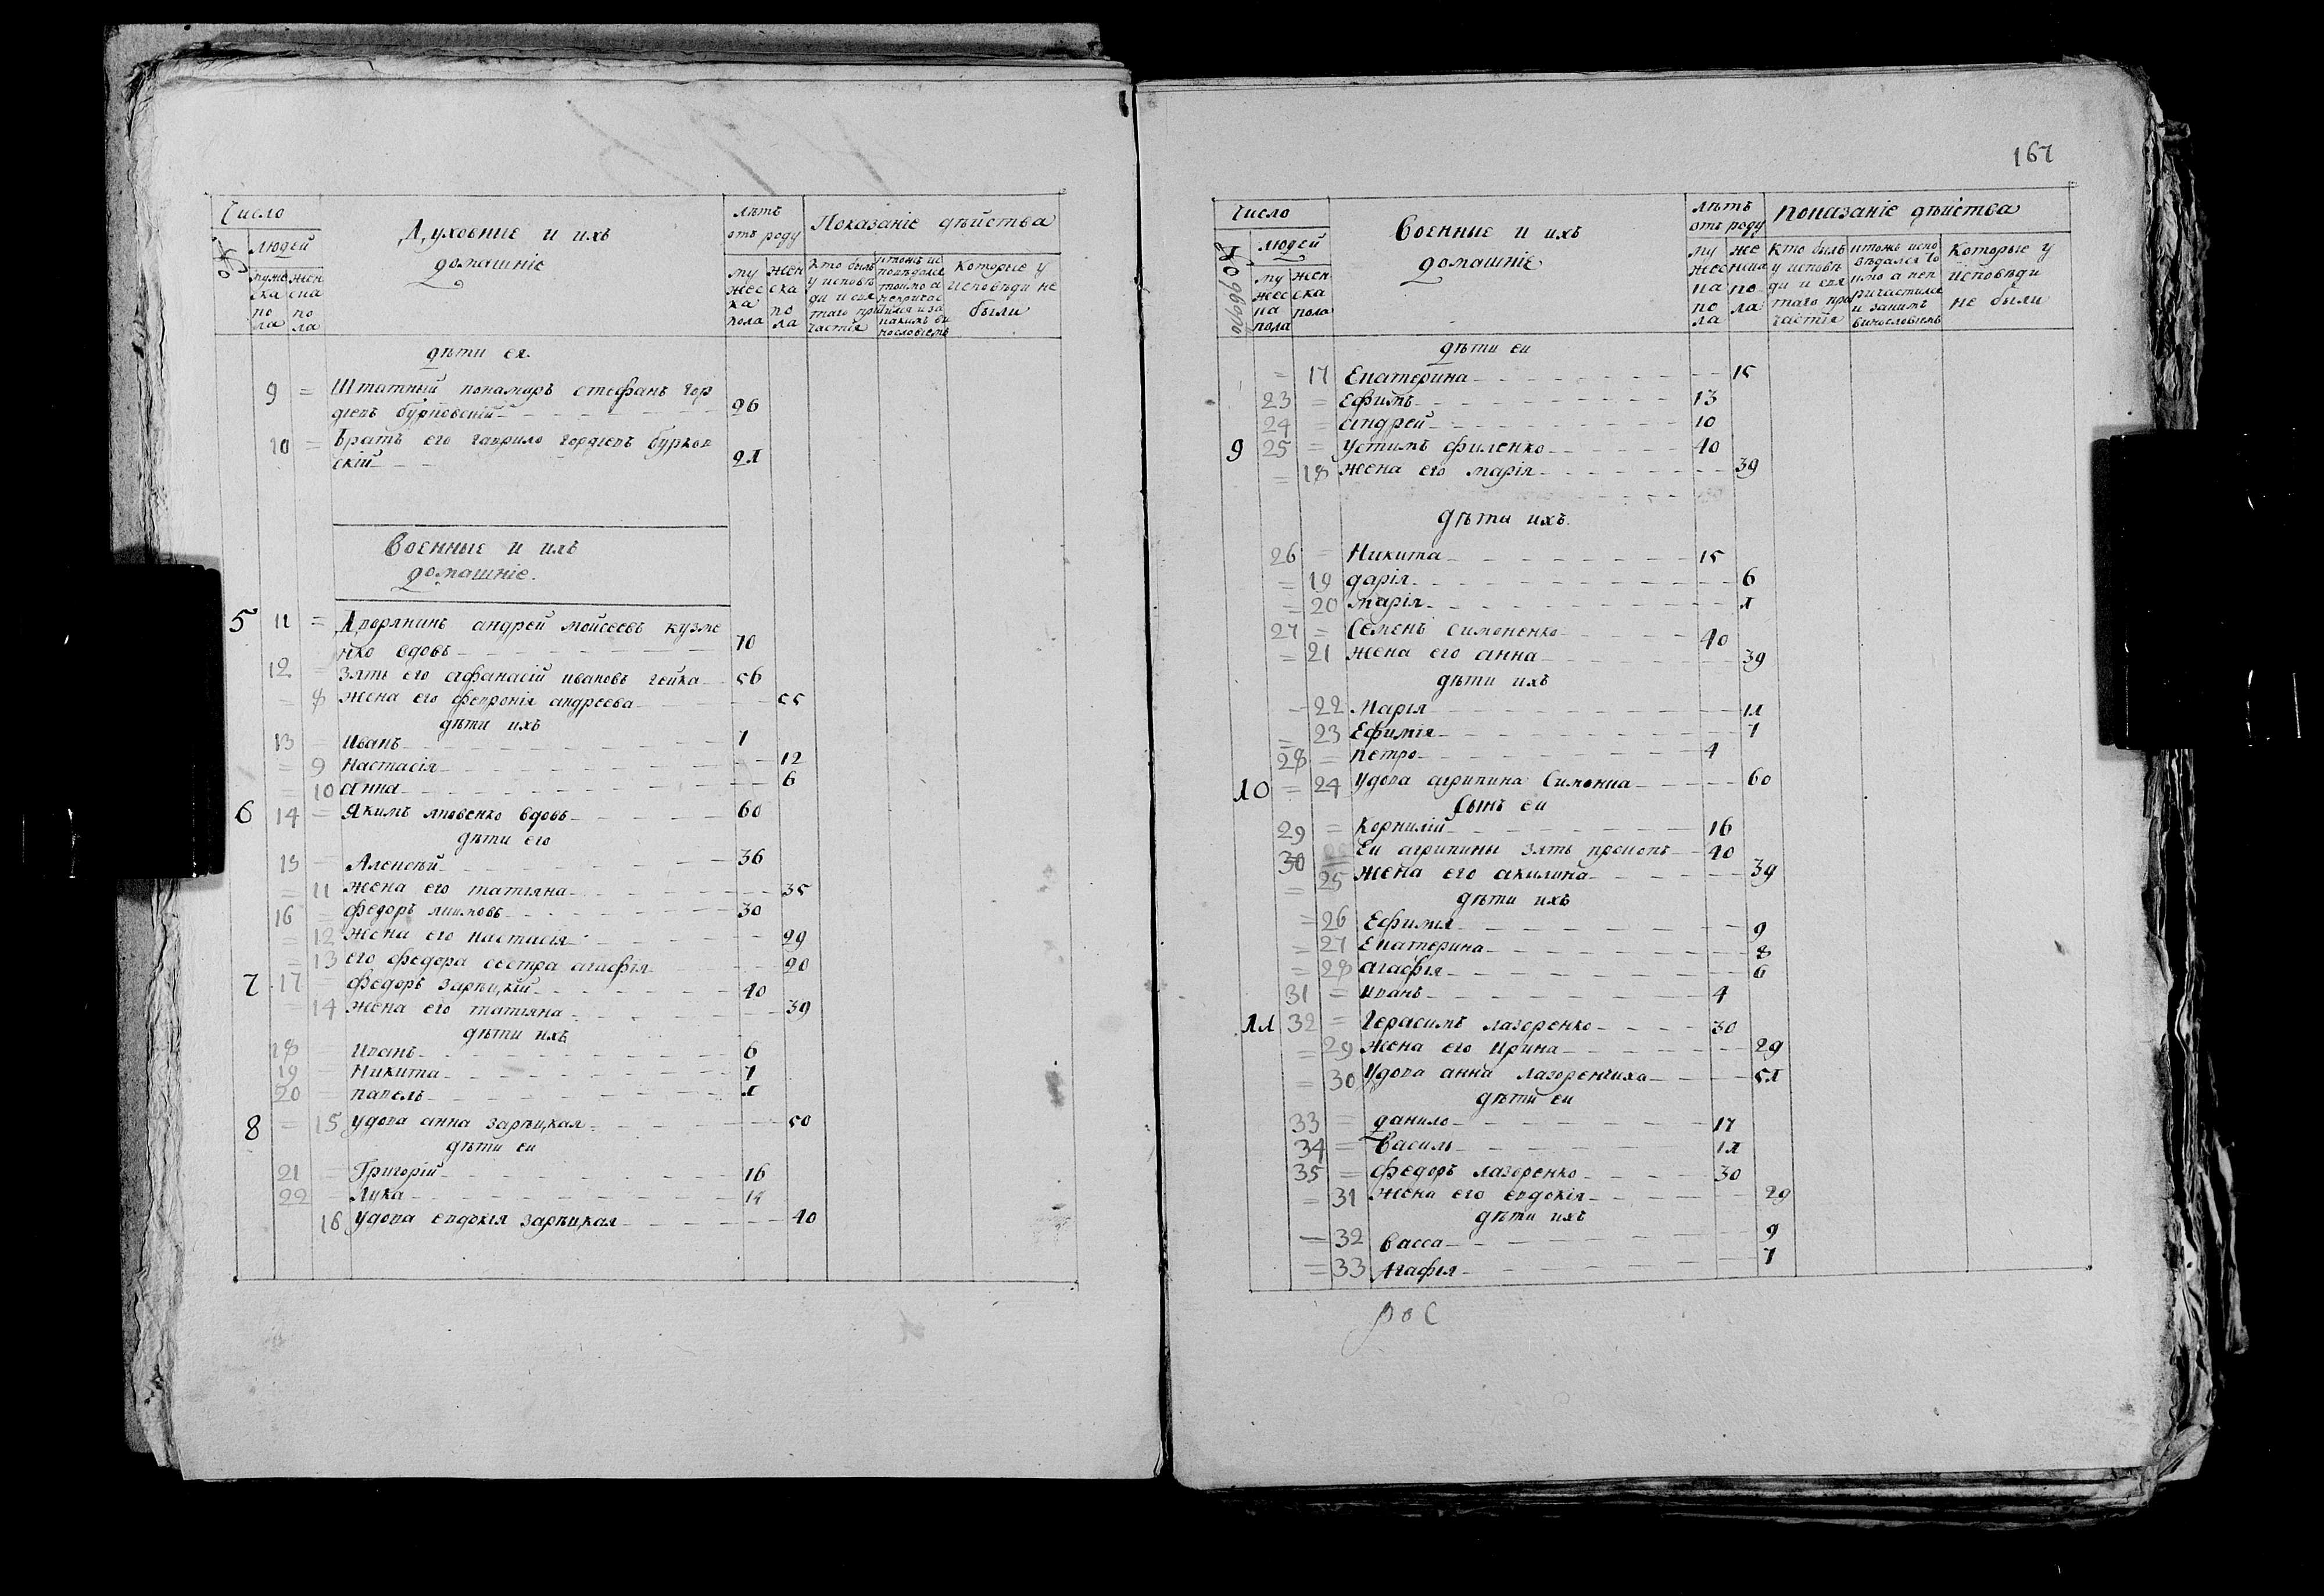 Число
людей
Духовние и ихъ
домашніе
лѣтъ
отъ роду
Показаніе дѣйства
муже ска по ла
жен ска по ла
му жес ка пола
жен ска по ла
Кто былъ у исповѣди и свя таго при частія
Которые у исповѣди не были
дѣти ея
9 = Штатный понамаръ стефанъ гор
дѣевъ бурковскій 26
10 = Братъ его гаврило гордѣевъ бурков
скій 21
Военные и ихъ
домашніе.
5 11 = Дворянинъ андрей моисеевъ кузме
нко вдовъ 70
12 = Зять его афанасій ивановъ гейка 56
= 8 жена его февронія андреева 55
дѣти ихъ
13 = Иванъ 7
= 9 Настасія 12
= 10 анна 6
6 14 = Якимъ яковенко вдовъ 60
дѣти его
15 = Алексѣй 36
= 11 жена его татіяна 35
16 = федоръ 30
= 12 жена его настасія 29
= 13 его федора сестра агафія 20
7 17 = федоръ зарѣцкій 40
= 14 жена его татіяна 39
дѣти ихъ
18 = Иванъ 6
19 = Никита 7
20 = павелъ 1
8 = 15 удова анна зарѣцкая 50
дѣти еи
21 = Григорій 16
22 = Лука 14
16 удова евдокія зарѣцкая 40
167
Число дворовъ
людей
Военные и ихъ
домашніе
лѣтъ
отъ роду
показаніе дѣйства
му жес ка пола
жен ска пола
му жес ка по ла
же нска по ла
Кто былъ у исповѣ ди и свя таго при частія
ктожъ испо вѣдался то лмо а неп ричастился и закимъ винословіемъ
Которые у исповѣди не были
дѣти еи
= 17 Екатерина 15
23 = Ефимъ 13
24 = андрей 10
9 25 = Устимъ филенко 40
= 18 жена его марія 39
дѣти ихъ.
26 = Никита 15
= 19 дарія 6
= 20 марія 1
27 = Семенъ симоненко 40
= 21 жена его анна 39
дѣти ихъ
= 22 Марія 11
= 23 Ефимія 7
28 = петро 4
10 = 24 Удова агрипина Симониха 60
Сынъ еи
29 = Корнилій 16
30 = Еи агрипины зять прокопъ 40
= 25 жена его акилина 39
дѣти ихъ
= 26 Ефимія 9
= 27 Екатерина 8
= 28 агафія 6
31 = Иванъ 4
11 32 = Герасимъ лазоренко 30
= 29 жена его Ирина 29
= 30 Удова анна лазоренчиха 51
дѣти еи
33 = данило 17
34 = Василь 11
35 = федоръ лазоренко 30
= 31 жена его евдокія 29
дѣти ихъ
= 32 васса 9
= 33 Агафія 7